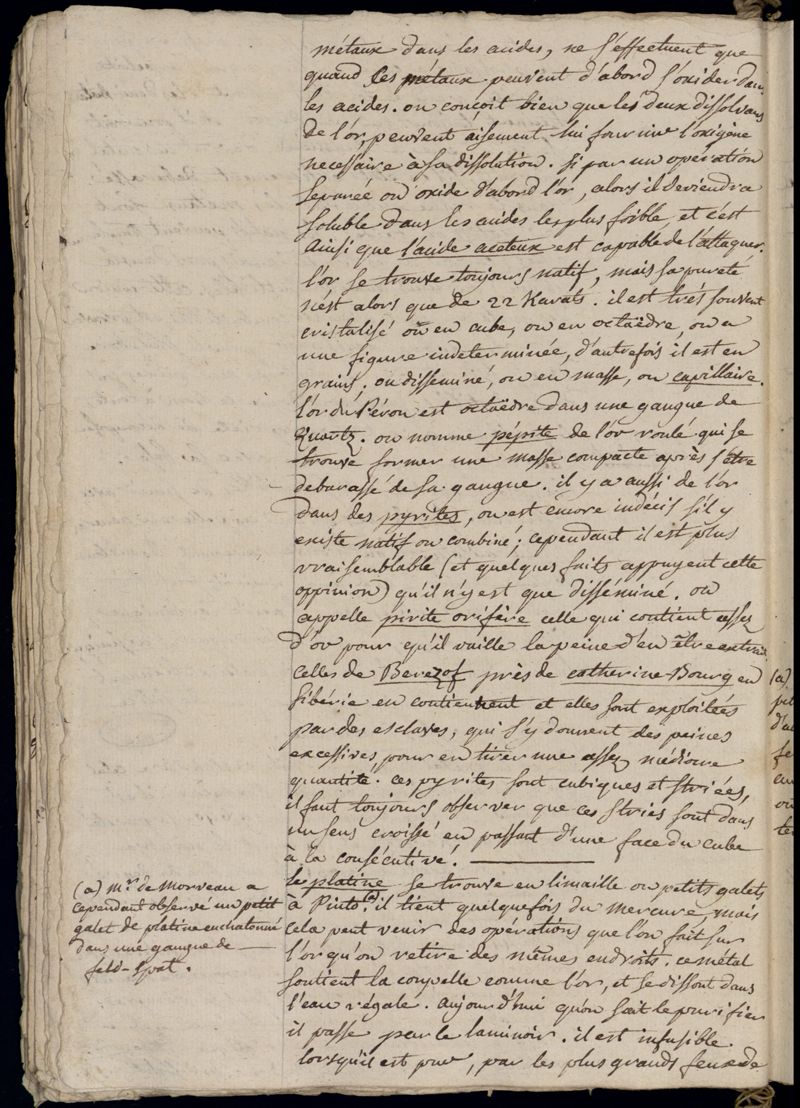 métaux dans les acides, ne s'effectuent que
quand ses métaux peuvent d'abord s'oxider dans
les acides. on conçoit bien que les deux dissolvans
de l'or, peuvent aisement lui fournir l'oxigène
necessaire à sa dissolution. si par un opération
separée on oxide d'abord l'or, alors il deviendra
soluble dans les acides les plus foible, et c'est
ainsi que l'acide aceteux est capable de l'attaquer.
l'or se trouve toujours natif, mais sa pureté
n'est alors que de 22 Karats. il est trés souvent
cristalisé où en cube, ou en octaëdre, ou a
une figure indeterminée, d'autrefois il est en
grains. ou disseminé, ou en masse, ou capillaire.
l'or du Pérou est octaëdre dans une gangue de
Quartz. on nomme pépite de l'or roulé qui se
trouve former une masse compacte après s'être
debarassé de sa gangue. il y a aussi de l'or
dans des pyrites, on est encore indécis s'il y
existe natif ou combiné; cependant il est plus
vraisemblable (et quelques faits appuyent cette
oppinion) qu'il n'y est que disséminé. on
appelle pirite orifère celle qui contient assez
d'or pour qu'il vaille la peine d'en être
celles de Berezof près de catherine-Bourg en
sibérie en contiennent et elles sont exploitées
par des esclaves, qui s'y donnent des peines
excessives, pour en tirer une assez médiocre
quantité. ces pyrites sont cubiques et striées,
il faut toujours observer que ces stries sont dans
un sens croissé en passant d'une face du cube
à la consécutive.
le platine se trouve en limaille ou petits galets
à Pinto. (a) il tient quelquefois du mercure, mais
cela peut venir des opérations que l'on fait sur
l'or qu'on retire des mêmes endroits. ce métal
soutient la coupelle comme l'or, et se dissout dans
l'eau régale. aujourd'hui qu'on sait le purifier
il passe par le laminoir. il est infusible
lorsqu'il est pur, par les plus grands feux de
(a) Mr. de Morveau a
cependant observé un petit
galet de platine enchatonné
dans une gangue de
feld-spat.
(a)